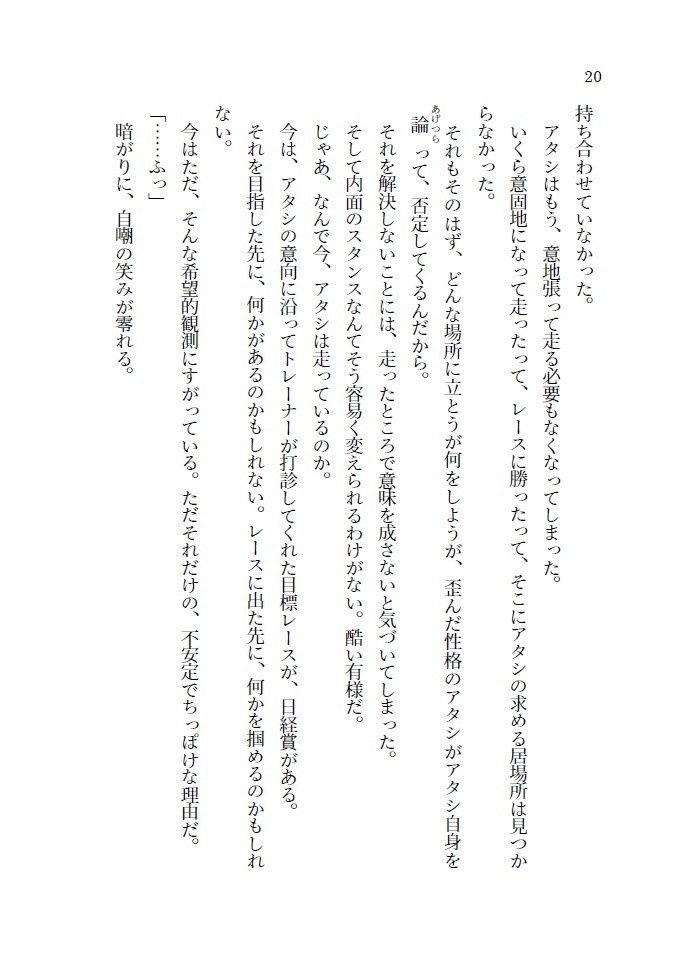 20
持ち合わせていなかった。
アタシはもう、意地張って走る必要もなくなってしまった。
いくら意固地になって走ったって、レースに勝ったって、そこにアタシの求める居場所は見つか
らなかった。
それもそのはず、どんな場所に立とうが何をしようが、歪んだ性格のアタシがアタシ自身を
論って、否定してくるんだから。
あげつら
それを解決しないことには、走ったところで意味を成さないと気づいてしまった。
そして内面のスタンスなんてそう容易く変えられるわけがない。酷い有様だ。
じゃあ、なんで今、アタシは走っているのか。
今は、アタシの意向に沿ってトレーナーが打診してくれた目標レースが、日経賞がある。
それを目指した先に、何かがあるのかもしれない。レースに出た先に、何かを掴めるのかもしれ
ない。
今はただ、そんな希望的観測にすがっている。ただそれだけの、不安定でちっぽけな理由だ。
「……ふっ」
暗がりに、自嘲の笑みが零れる。